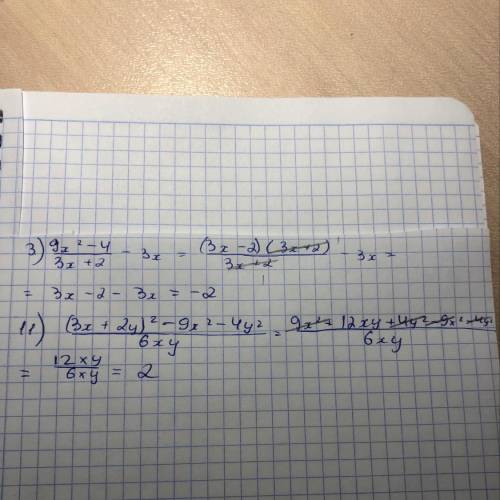 3) (9x² - 4)/(3x + 2) - 3x = ((3x - 2)(3x + 2))/(3x + 2) - 3x =
= 3x - 2 - 3x = -2
11) ((3x + 2y)² - 9x² - 4y²)/(6xy) = (9x² + 12xy + 4y² - 9x² - 4y²)/(6xy)
= (12xy)/(6xy) = 2